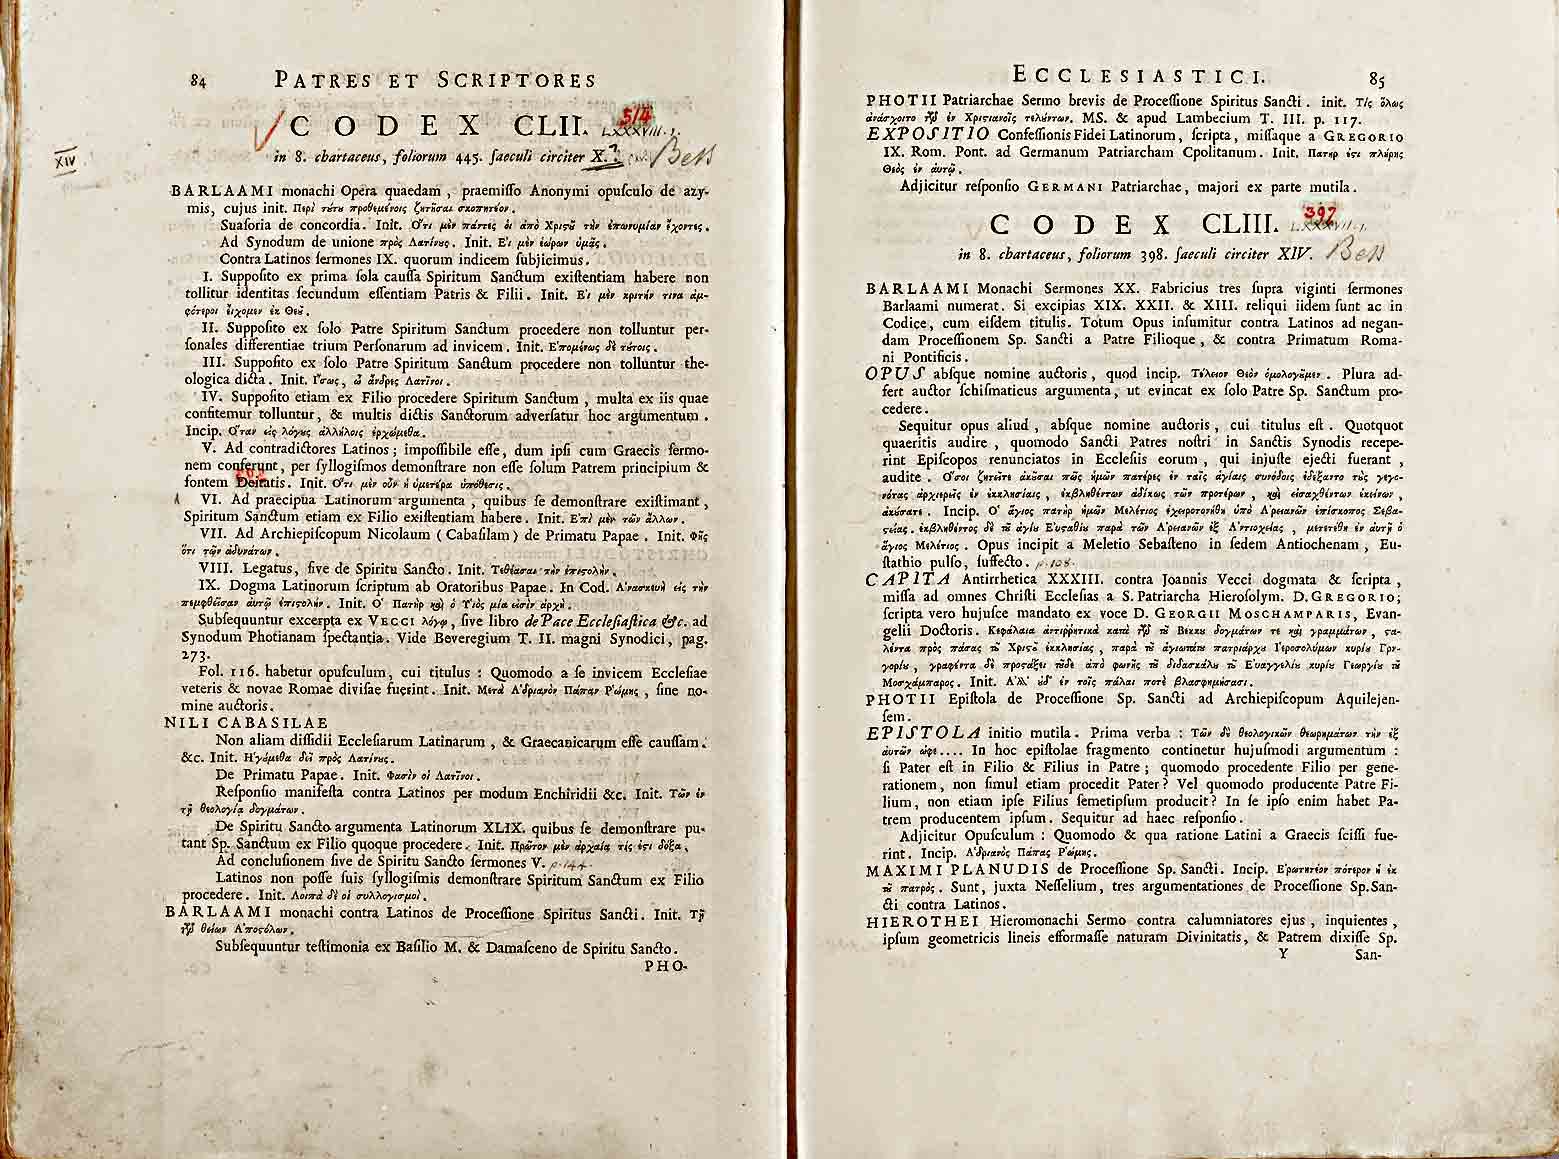 84 PATRES ET SCRIPTORES
CODEX CLII. 514 LXXXVIII. 1.
in 8. chartaceus, foliorum 445. ſaeculi circiter X. ? Bess
XIV
BARLAAMI monachi Opera quaedam, praemiſſo Anonymi opuſculo de azy-
mis, cujus init. Περὶ τούτου προθεμένοις ζητῆσαι σκοπητέον.
Suaſoria de concordia. Init. Ὅτι μὲν πάντες οἱ ἀπὸ Χριστοῦ τὴν ἐπωνυμίαν ἔχοντες.
Ad Synodum de unione πρὸς Λατίνους. Init. Εἰ μὲν ἑώρων ὑμᾶς.
Contra Latinos ſermones IX. quorum indicem ſubjicimus.
I. Suppoſito ex prima ſola cauſſa Spiritum Sanctum exiſtentiam habere non
tollitur identitas ſecundum eſſentiam Patris & Filii. Init. Εἰ μὲν κριτήν τινα ἀμ-
φότεροι εἴχομεν ἐκ Θεοῦ.
II. Suppoſito ex ſolo Patre Spiritum Sanctum procedere non tolluntur per-
ſonales differentiae trium Perſonarum ad invicem. Init. Ἑπομένως δὲ τούτοις.
III. Suppoſito ex ſolo Patre Spiritum Sanctum procedere non tolluntur the-
ologica dicta. Init. Ἴσως, ὦ ἄνδρες Λατῖνοι.
IV. Suppoſito etiam ex Filio procedere Spiritum Sanctum, multa ex iis quae
confitemur tolluntur, & multis dictis Sanctorum adverſatur hoc argumentum.
Incip. Ὅταν εἰς λόγους ἀλλήλοις ἐρχώμεθα.
V. Ad contradictores Latinos; impoſſibile eſſe, dum ipſi cum Graecis ſermo-
nem conferunt, per ſyllogiſmos demonſtrare non eſſe ſolum Patrem principium &
fontem Deitatis. Init. Ὅτι μὲν οὖν ἡ ὑμετέρα ὑπόθεσις.
VI. Ad praecipua Latinorum argumenta, quibus ſe demonſtrare exiſtimant,
Spiritum Sanctum etiam ex Filio exiſtentiam habere. Init. Ἐπὶ μὲν τῶν ἄλλων.
VII. Ad Archiepiſcopum Nicolaum (Cabaſilam) de Primatu Papae. Init. Φῂς
ὅτι τῶν ἀδυνάτων.
VIII. Legatus, ſive de Spiritu Sancto. Init. Τεθέασαι τὴν ἐπιστολήν.
IX. Dogma Latinorum ſcriptum ab Oratoribus Papae. In Cod. Ἀνασκευὴ εἰς τὴν
πεμφθεῖσαν αὐτῷ ἐπιστολήν. Init. Ὁ Πατὴρ καὶ ὁ Υἱὸς μία εἰσὶν ἀρχή.
Subſequuntur excerpta ex VECCI λόγῳ, ſive libro de Pace Eccleſiaſtica &c. ad
Synodum Photianam ſpectantia. Vide Beveregium T. II. magni Synodici, pag.
273.
Fol. 116. habetur opuſculum, cui titulus: Quomodo a ſe invicem Eccleſiae
veteris & novae Romae diviſae fuerint. Init. Μετὰ Ἀδριανὸν Πάπαν Ῥώμης, ſine no-
mine auctoris.
NILI CABASILAE
Non aliam diſſidii Eccleſiarum Latinarum, & Graecanicarum eſſe cauſſam.
&c. Init. Ἡγούμεθα δεῖ πρὸς Λατίνους.
De Primatu Papae. Init. Φασὶν οἱ Λατῖνοι.
Reſponſio manifeſta contra Latinos per modum Enchiridii &c. Init. Τῶν ἐν
τῇ θεολογίᾳ δογμάτων.
De Spiritu Sancto argumenta Latinorum XLIX. quibus ſe demonſtrare pu-
tant Sp. Sanctum ex Filio quoque procedere. Init. Πρῶτον μὲν ἀρχαία τίς ἐστι δόξα.
Ad concluſionem ſive de Spiritu Sancto ſermones V. p. 144.
Latinos non poſſe ſuis ſyllogiſmis demonſtrare Spiritum Sanctum ex Filio
procedere. Init. Λοιπὰ δὲ οἱ συλλογισμοί.
BARLAAMI monachi contra Latinos de Proceſſione Spiritus Sancti. Init. Τῇ
τῶν θείων Ἀποστόλων.
Subſequuntur teſtimonia ex Baſilio M. & Damaſceno de Spiritu Sancto.
PHO-
ECCLESIASTICI. 85
PHOTII Patriarchae Sermo brevis de Proceſſione Spiritus Sancti. init. Τίς ὅλως
ἀνάσχοιτο τῶν ἐν Χριστιανοῖς τελούντων. MS. & apud Lambecium T. III. p. 117.
EXPOSITIO Confeſſionis Fidei Latinorum, ſcripta, miſſaque a GREGORIO
IX. Rom. Pont. ad Germanum Patriarcham Cpolitanum. Init. Πατὴρ ἐστι πλήρης
Θεὸς ἐν αὐτῷ.
Adjicitur reſponſio GERMANI Patriarchae, majori ex parte mutila.
CODEX CLIII. 397 LXXXVII. 1.
in 8. chartaceus, foliorum 398. ſaeculi circiter XIV. Bess
BARLAAMI Monachi Sermones XX. Fabricius tres ſupra viginti ſermones
Barlaami numerat. Si excipias XIX. XXII. & XIII. reliqui iidem ſunt ac in
Codice, cum eiſdem titulis. Totum Opus inſumitur contra Latinos ad negan-
dam Proceſſionem Sp. Sancti a Patre Filioque, & contra Primatum Roma-
ni Pontificis.
OPUS abſque nomine auctoris, quod incip. Τέλειον Θεὸν ὁμολογοῦμεν. Plura ad-
fert auctor ſchiſmaticus argumenta, ut evincat ex ſolo Patre Sp. Sanctum pro-
cedere.
Sequitur opus aliud, abſque nomine auctoris, cui titulus eſt. Quotquot
quaeritis audire, quomodo Sancti Patres noſtri in Sanctis Synodis recepe-
rint Epiſcopos renunciatos in Eccleſiis eorum, qui injuſte ejecti fuerant,
audite. Ὅσοι ζητεῖτε ἀκοῦσαι πῶς ἡμῶν πατέρες ἐν ταῖς ἁγίαις συνόδοις ἐδέξαντο τοὺς γεγο-
νότας ἀρχιερεῖς ἐν ἐκκλησίαις, ἐκβληθέντων ἀδίκως τῶν προτέρων, καὶ εἰσαχθέντων ἐκείνων,
ἀκούσατε. Incip. Ὁ ἅγιος πατὴρ ἡμῶν Μελέτιος ἐχειροτονήθη ὑπὸ Ἀρειανῶν ἐπίσκοπος Σεβα-
στείας. ἐκβληθέντος δὲ τοῦ ἁγίου Εὐσταθίου παρὰ τῶν Ἀρειανῶν ἐξ Ἀντιοχείας, μετετέθη ἐν αὐτῇ ὁ
ἅγιος Μελέτιος. Opus incipit a Meletio Sebaſteno in ſedem Antiochenam, Eu-
ſtathio pulſo, ſuffecto. p. 128.
CAPITA Antirrhetica XXXIII. contra Joannis Vecci dogmata & ſcripta,
miſſa ad omnes Chriſti Eccleſias a S. Patriarcha Hieroſolym. D. GREGORIO;
ſcripta vero hujuſce mandato ex voce D. GEORGII MOSCHAMPARIS, Evan-
gelii Doctoris. Κεφάλαια ἀντιρρητικὰ κατὰ τῶν τοῦ Βέκκου δογμάτων τε καὶ γραμμάτων, στα-
λέντα πρὸς πάσας τοῦ Χριστοῦ ἐκκλησίας, παρὰ τοῦ ἁγιωτάτου πατριάρχου Ἱεροσολύμων κυρίου Γρη-
γορίου, γραφέντα δὲ προστάξει τοῦδε ἀπὸ φωνῆς τοῦ διδασκάλου τοῦ Εὐαγγελίου κυρίου Γεωργίου τοῦ
Μοσχάμπαρος. Init. Ἀλλ' οὐδ' ἐν τοῖς πάλαι ποτὲ βλασφημήσασι.
PHOTII Epiſtola de Proceſſione Sp. Sancti ad Archiepiſcopum Aquilejen-
ſem.
EPISTOLA initio mutila. Prima verba: Τῶν δὲ θεολογικῶν θεωρημάτων τὴν ἐξ
αὐτῶν ὠφε.... In hoc epiſtolae fragmento continetur hujuſmodi argumentum:
ſi Pater eſt in Filio & Filius in Patre; quomodo procedente Filio per gene-
rationem, non ſimul etiam procedit Pater? Vel quomodo producente Patre Fi-
lium, non etiam ipſe Filius ſemetipſum producit? In ſe ipſo enim habet Pa-
trem producentem ipſum. Sequitur ad haec reſponſio.
Adjicitur Opuſculum: Quomodo & qua ratione Latini a Graecis ſciſſi fue-
rint. Incip. Ἀδριανὸς Πάπας Ῥώμης.
MAXIMI PLANUDIS de Proceſſione Sp. Sancti. Incip. Ἐρωτητέον πότερον ἢ ἐκ
τοῦ πατρός. Sunt, juxta Neſſelium, tres argumentationes de Proceſſione Sp. San-
cti contra Latinos.
HIEROTHEI Hieromonachi Sermo contra calumniatores ejus, inquientes,
ipſum geometricis lineis efformaſſe naturam Divinitatis, & Patrem dixiſſe Sp.
Y San-